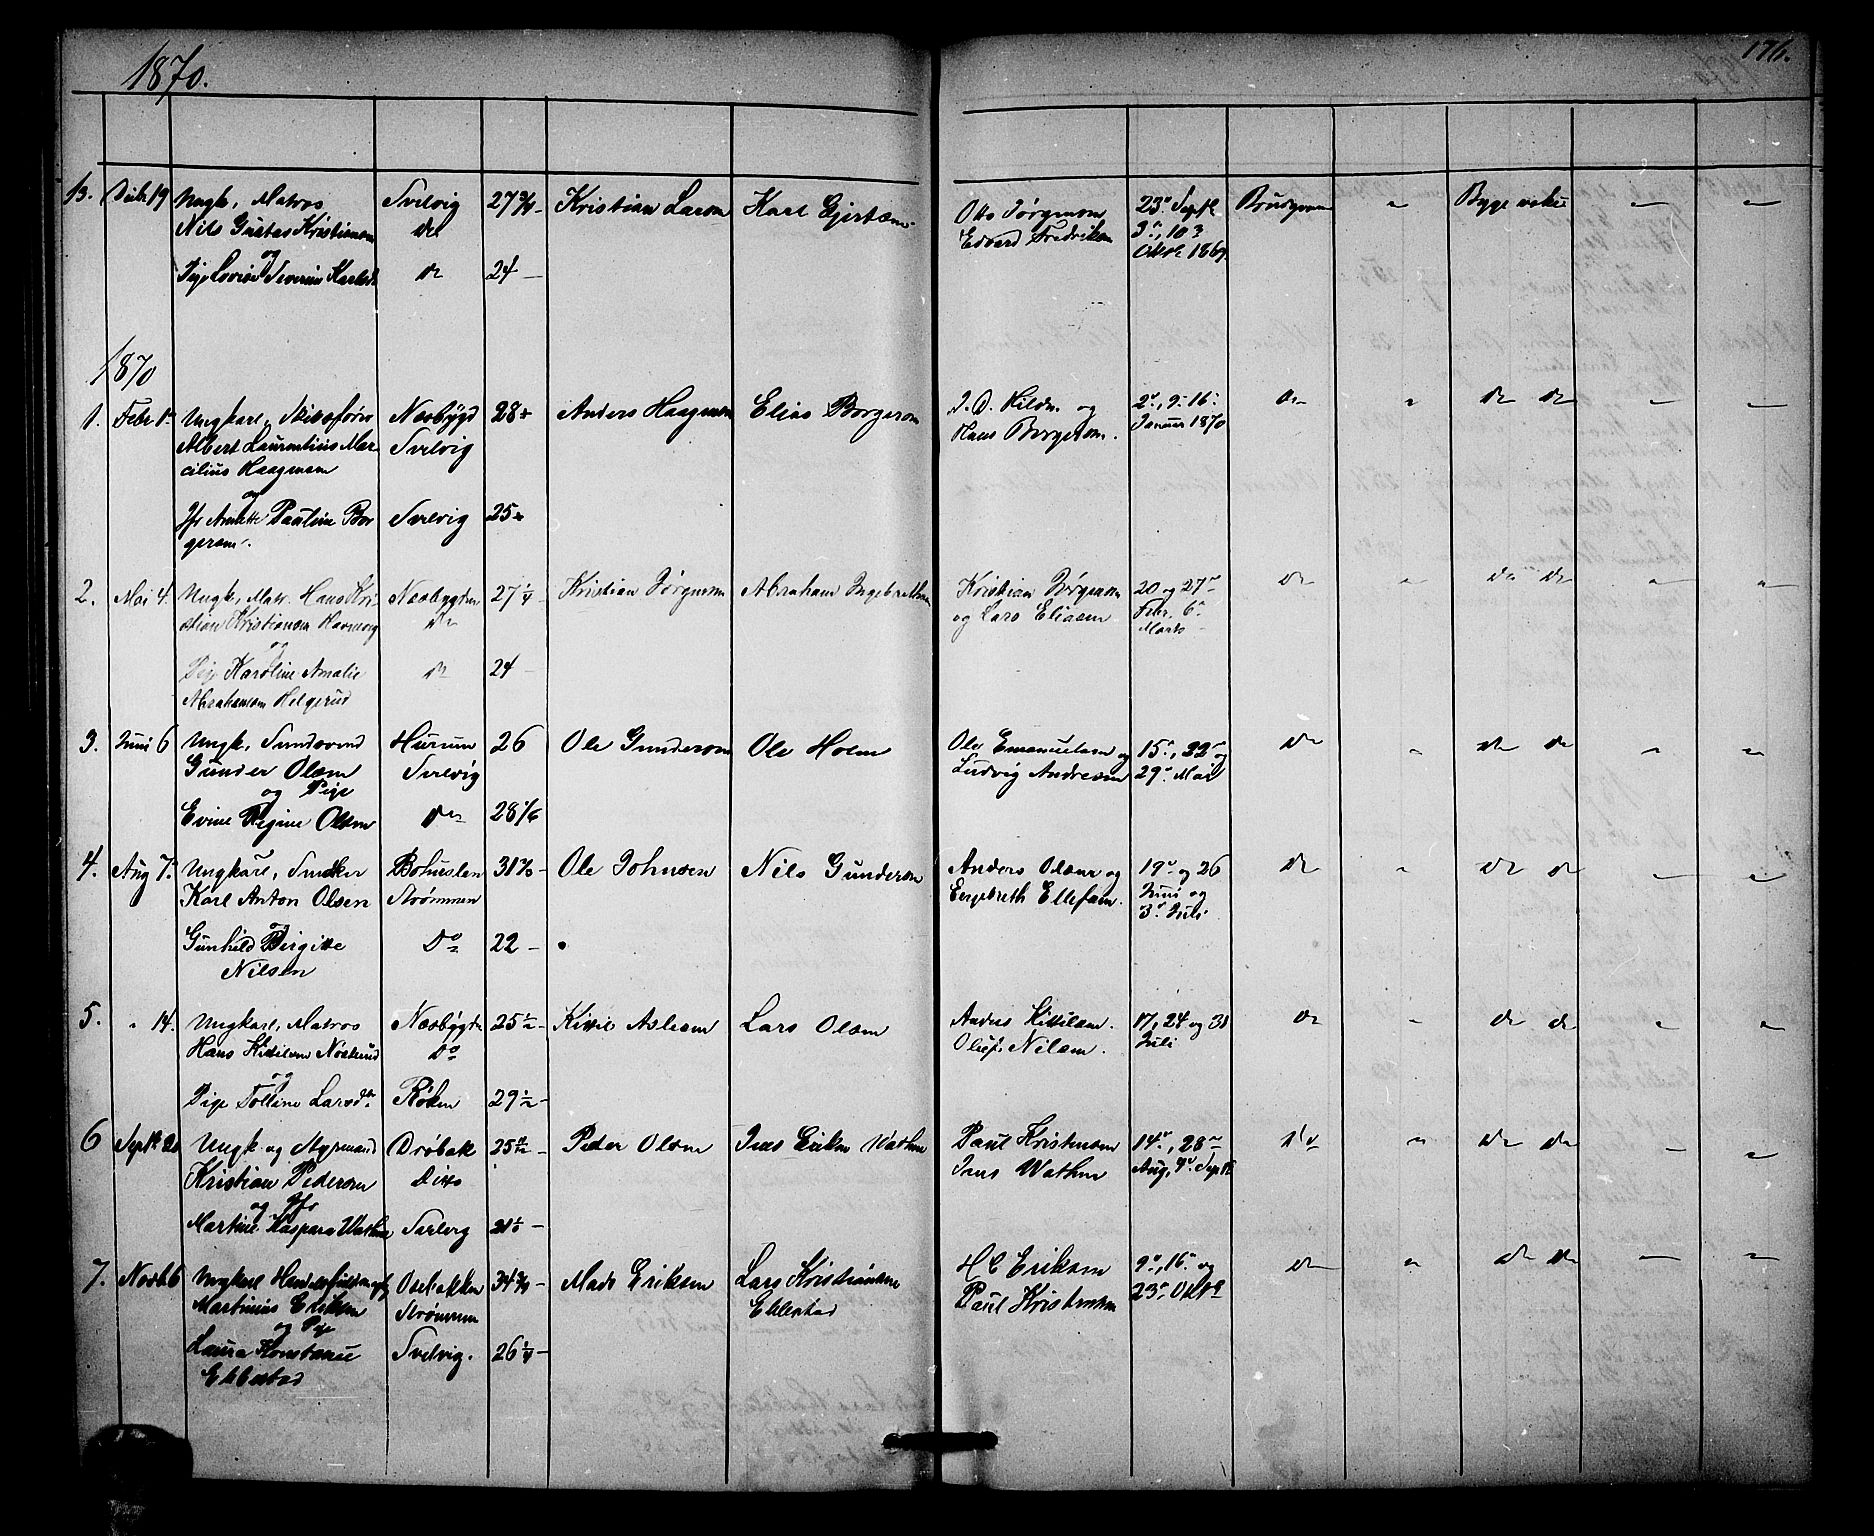 1870.
176.
13. Decbr 19 Ungk, Matros Svelvig 27 3/4 - Kristian Larsen Karl Gjertsen Otto Jørgensen 23de Septbr Brudgom " Bygeveker " "
Nils Gustav Kristiansen do Edvard Fredriksen 3die, 10de
og Oktbr 1869.
Pige Lovise Severine Karlsdr do 24 -
1870
1. Febr 1 Ungkarl, Næsbygd 28 Anders Haagensen Elias Borgersen J. D. Hilsen og 2den, 9. 16. do " do do " "
Albert Laurentius Mar- Svelvig Hans Borgersen. Januar 1870
cilius Haagensen
og
Jfr Anette Pauline Bor- Svelvig 25
gersen.
2. Mai 4. Ungk, Matr. Hans Kri- Næsbygden 27 1/4 Kristian Jørgensen Abraham Ingebretsen Kristian Jørgensen 20 og 27de do " do do " "
stian Kristiansen Havnevig do og Lars Eliasen Febr. 6te
og Marts
Pige Karoline Amalie do 24 -
Abrahamsen Helgerud
3. Juni 6 Ungk, Hurum 26 Ole Gundersen Ole Holm Ole Emanuelsen og 15de, 22de og do " do do " "
Gunder Olsen Svelvig Ludvig Andresen 29de Mai
og Pige
Evine Regine Olsen do 28 1/6
4. Aug 7. Ungkarl, Snedker Bohuslen Ole Johnsen Nils Gundersen Anders Olsen og 19de og 26 do " do do " "
Karl Anton Olsen Strømmen Engebreth Ellefsen. Juni og
og 3die Juli
Gunhild Birgitte Do 22 -
Nilsen
5. " 14. Ungkarl, Matros Næsbygden 25 1/2 - Kittil Aslesen Lars Olsen Anders Kittilsen. 17, 24 og 31 do " do do " "
Hans Kittilsen Do Oluf Nilsen. Juli
og
Pige Tolline Larsdtr. Røken 29 1/2 -
6 Septbr 20 Ungk og Styrmand Drøbak Peder Olsen Jens Eriksen Wathne Paul Kristensen 14de, 28de do " do do " "
Kristian Pedersen Ditto Jens Wathne Aug, 4de Septbr
og Jfr
Martine Kaspara Wathne
7. Novb 6 Ungkarl Osebakken 34 3/4 - Mads Eriksen Lars Kristiansen H C Eriksen 9de, 16de og do " do do " "
Martinius Eriksen Strømmen Ekkestad Paul Kristensen 23de Oktbr
og Pige
Laura Konstanse Svelvig. 26 1/4 -
Ekkestad